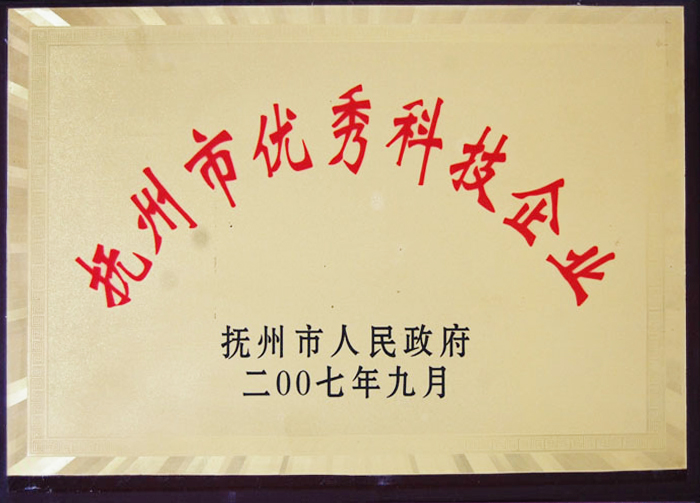 抚州市优秀科技企业
抚州市人民政府
二00七年九月